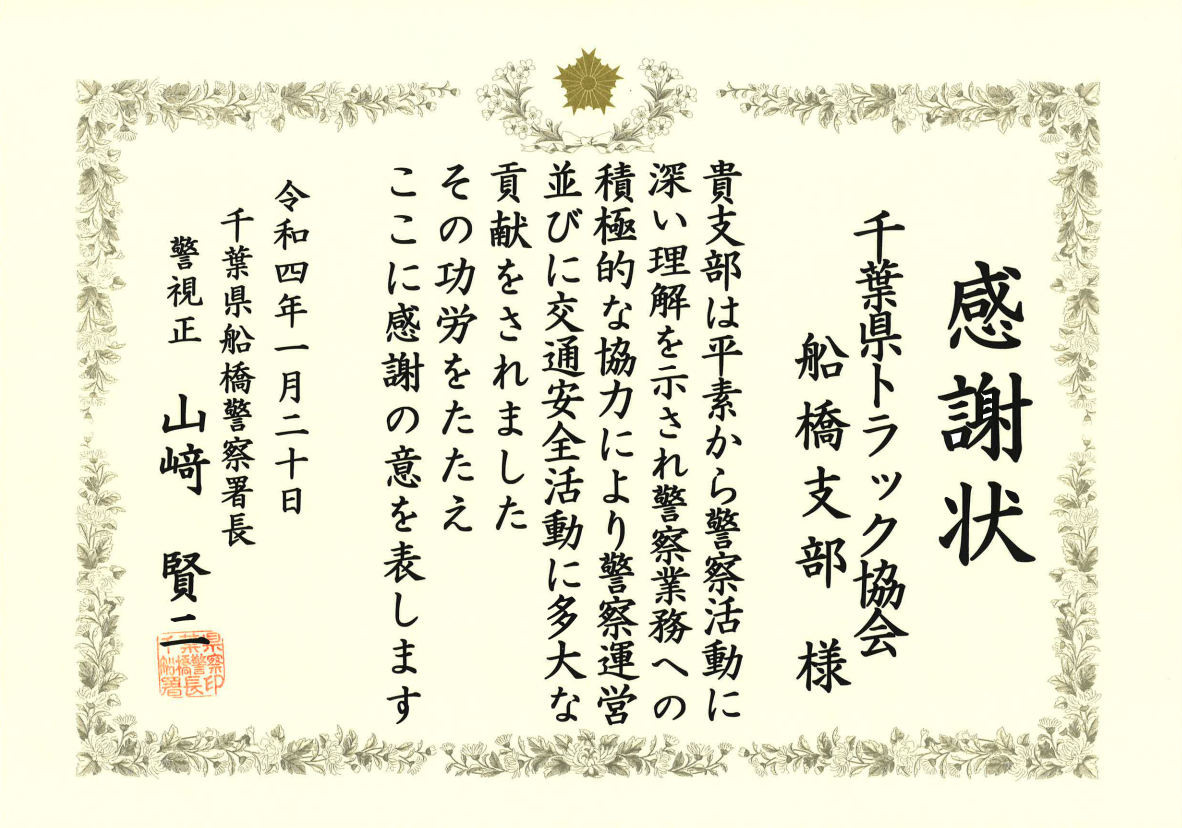 感謝状
千葉県トラック協会
船橋支部 様
貴支部は平素から警察活動に
深い理解を示され警察業務への
積極的な協力により警察運営
並びに交通安全活動に多大な
貢献をされました
その功労をたたえ
ここに感謝の意を表します
令和四年一月二十日
千葉県船橋警察署長
警視正 山﨑 賢二